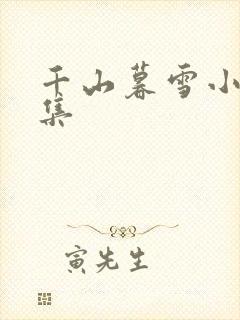 千山暮雪小
集
寅先生